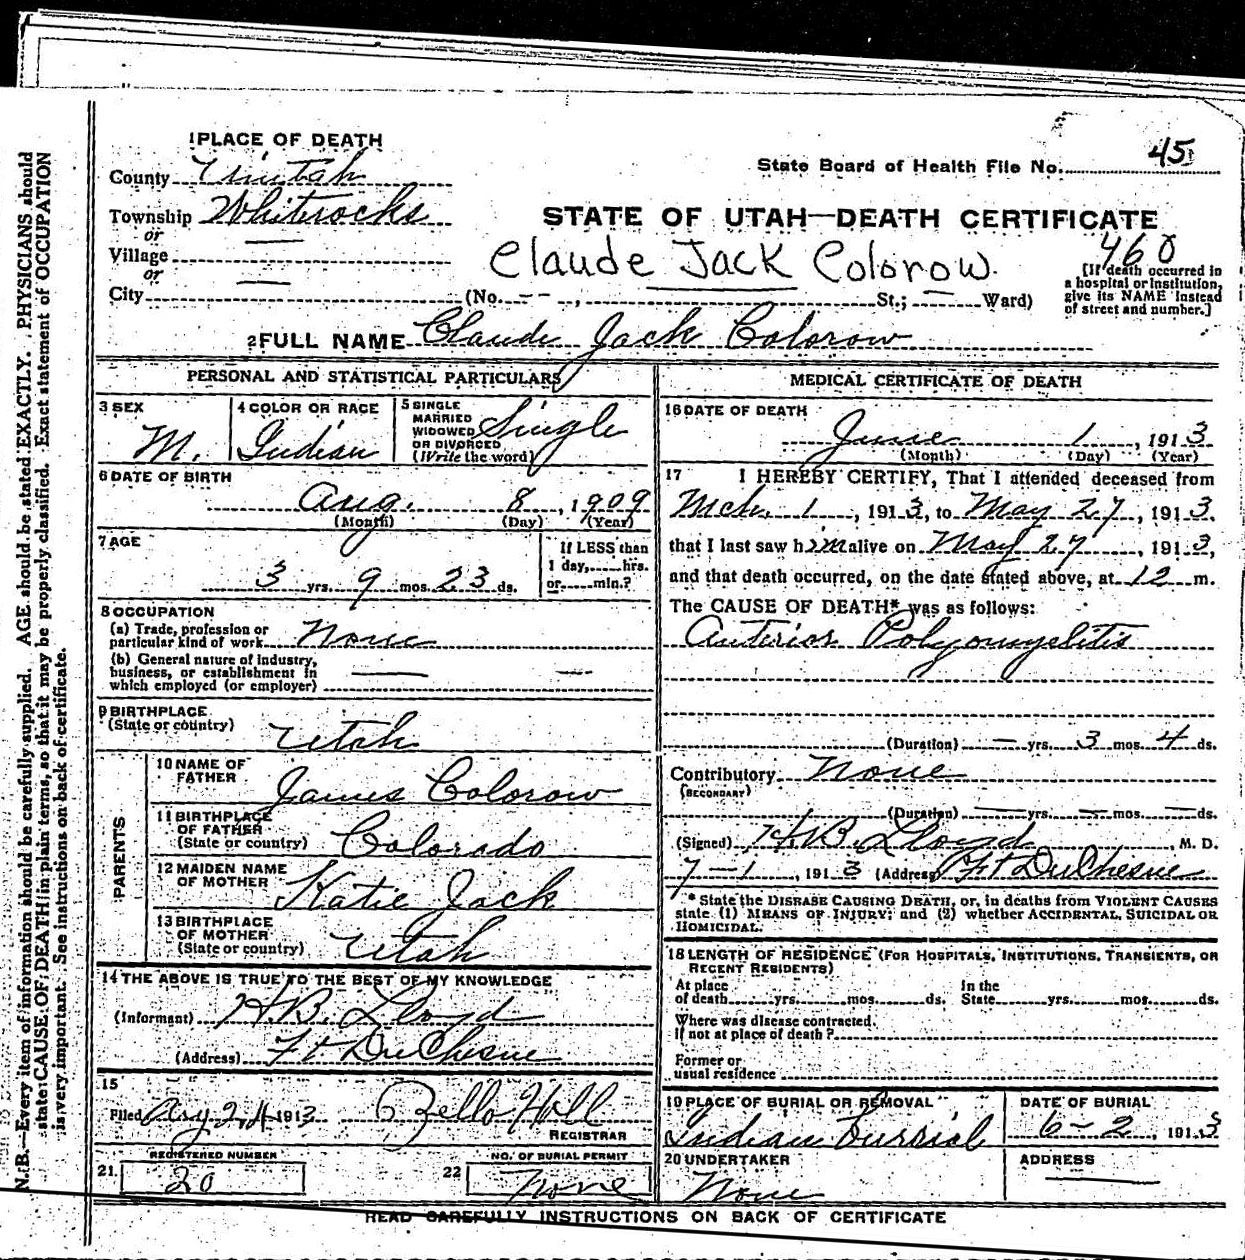 1 PLACE OF DEATH
County Uintah
State Board of Health File No. 45
Township Whiterocks
or
Village —
or
City —
STATE OF UTAH—DEATH CERTIFICATE
Claude Jack Colorow
460
(No. -- , St.; — Ward)
[If death occurred in
a hospital or institution,
give its NAME instead
of street and number.]
2 FULL NAME Claude Jack Colorow
PERSONAL AND STATISTICAL PARTICULARS
3 SEX
M.
4 COLOR OR RACE
Indian
5 SINGLE
MARRIED
WIDOWED
OR DIVORCED
(Write the word)
Single
6 DATE OF BIRTH
Aug. 8, 1909
(Month) (Day) (Year)
7 AGE
3 yrs. 9 mos. 23 ds.
If LESS than
1 day, hrs.
or min.?
8 OCCUPATION
(a) Trade, profession or
particular kind of work None
(b) General nature of industry,
business, or establishment in
which employed (or employer) —
9 BIRTHPLACE
(State or country)
Utah
PARENTS
10 NAME OF
FATHER
James Colorow
11 BIRTHPLACE
OF FATHER
(State or country)
Colorado
12 MAIDEN NAME
OF MOTHER
Katie Jack
13 BIRTHPLACE
OF MOTHER
(State or country)
Utah
14 THE ABOVE IS TRUE TO THE BEST OF MY KNOWLEDGE
(Informant) H.B. Lloyd
(Address) Ft DuChesne
15
Filed Aug 24 1913 Zello Hall
REGISTRAR
21. REGISTERED NUMBER
20
22 NO. OF BURIAL PERMIT
None
MEDICAL CERTIFICATE OF DEATH
16 DATE OF DEATH
June 1, 1913
(Month) (Day) (Year)
17 I HEREBY CERTIFY, That I attended deceased from
Mch. 1, 1913, to May 27, 1913,
that I last saw him alive on May 27, 1913,
and that death occurred, on the date stated above, at 12 m.
The CAUSE OF DEATH* was as follows:
Anterior Polyomyelitis
(Duration) — yrs. 3 mos. 4 ds.
Contributory None
(SECONDARY)
(Duration) — yrs. — mos. — ds.
(Signed) H.B. Lloyd, M. D.
7-1, 1913 (Address) Ft DuChesne
* State the DISEASE CAUSING DEATH, or, in deaths from VIOLENT CAUSES
state (1) MEANS OF INJURY; and (2) whether ACCIDENTAL, SUICIDAL OR
HOMICIDAL.
18 LENGTH OF RESIDENCE (FOR HOSPITALS, INSTITUTIONS, TRANSIENTS, OR
RECENT RESIDENTS)
At place
of death yrs. mos. ds.
In the
State yrs. mos. ds.
Where was disease contracted,
if not at place of death?
Former or
usual residence
19 PLACE OF BURIAL OR REMOVAL
Indian Burrial
DATE OF BURIAL
6-2, 1913
20 UNDERTAKER
None
ADDRESS
—
READ CAREFULLY INSTRUCTIONS ON BACK OF CERTIFICATE
N. B.—Every item of information should be carefully supplied. AGE should be stated EXACTLY. PHYSICIANS should
state CAUSE OF DEATH in plain terms, so that it may be properly classified. Exact statement of OCCUPATION
is very important. See instructions on back of certificate.